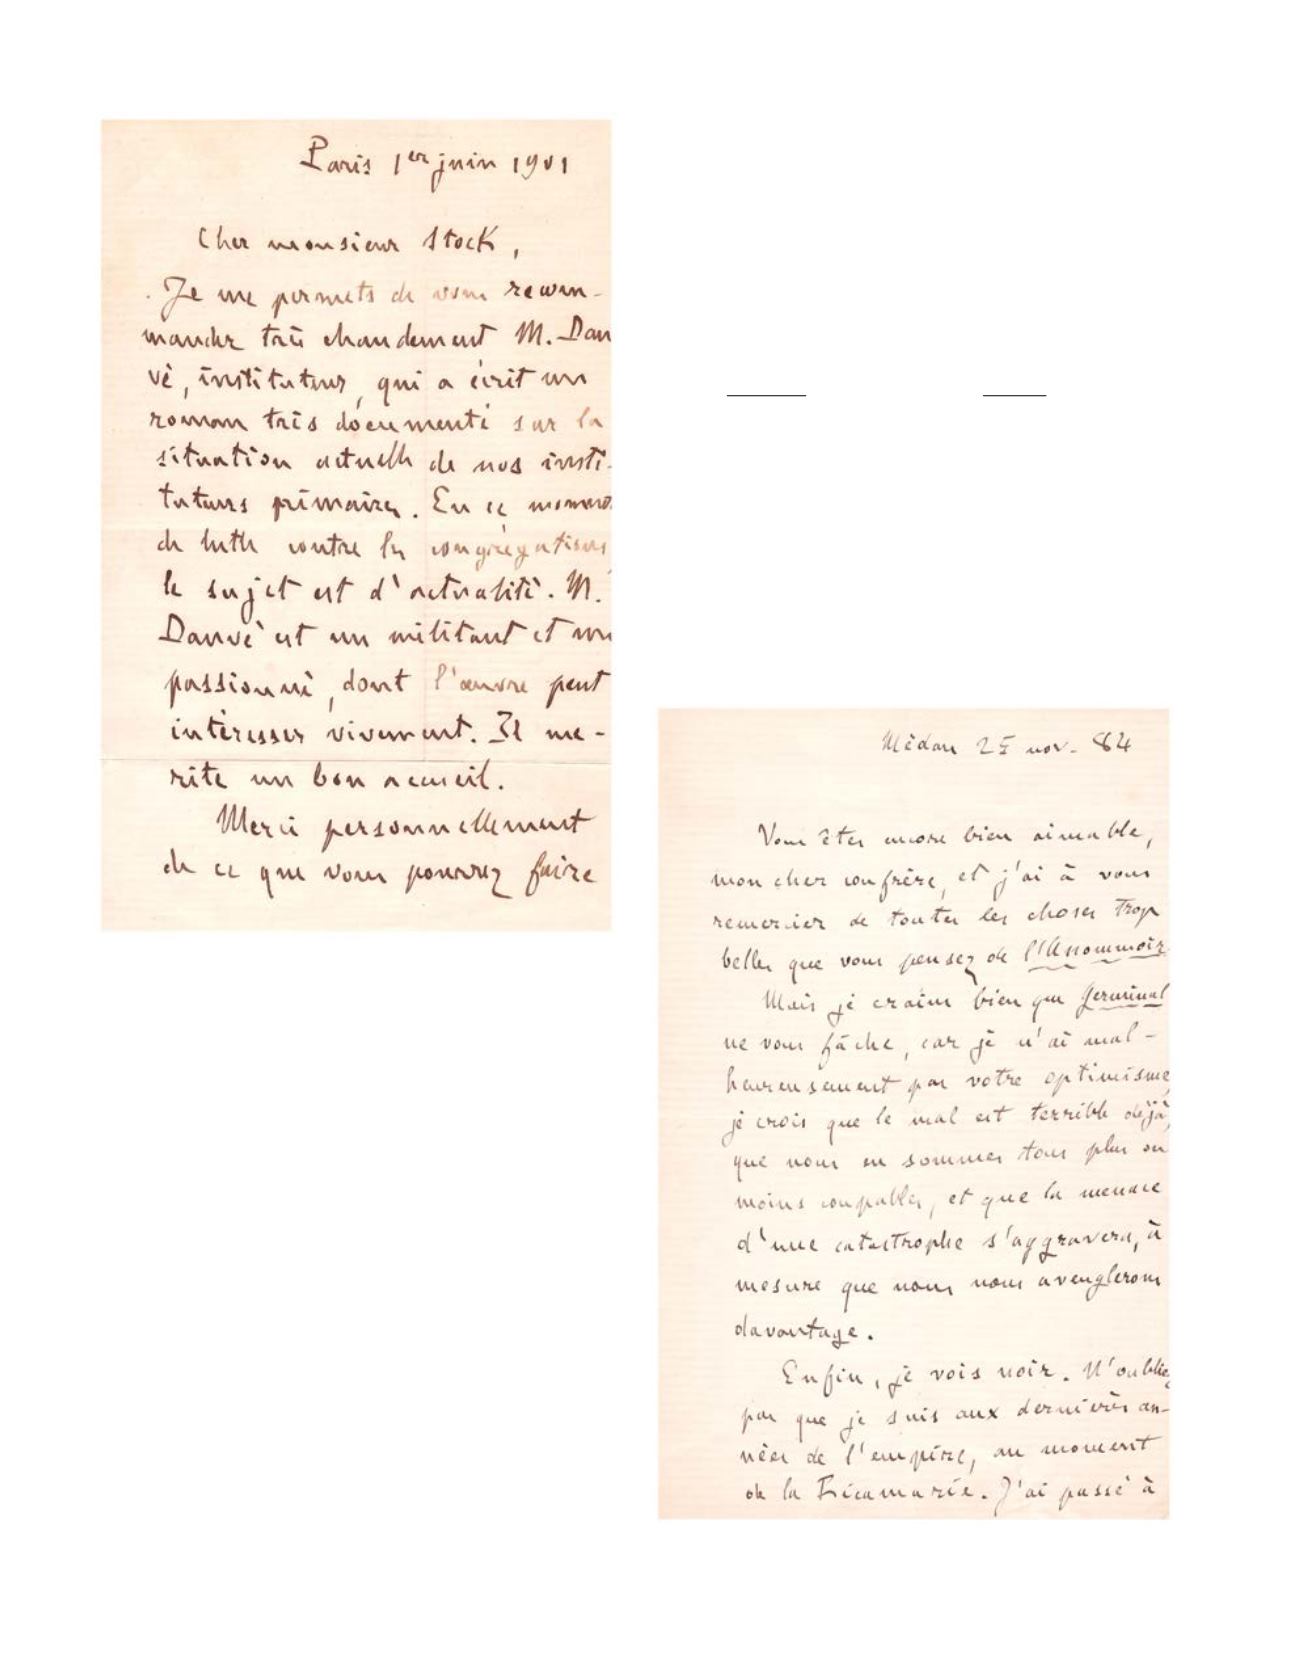 Paris 1er juin 1901
Cher monsieur Stock,
Je me permets de vous recom-
mander très chaudement M. Dau
vé, instituteur, qui a écrit un
roman très documenté sur la
situation actuelle de nos insti-
tuteurs primaires. En ce moment
de lutte contre les congrégations,
le sujet est d'actualité. M.
Dauvé est un militant et un
passionné, dont l'œuvre peut
intéresser vivement. Il mé-
rite un bon accueil.
Merci personnellement
de ce que vous pourrez faire
Médan nov. 84
Vous êtes encore bien aimable,
mon cher confrère, et j'ai à vous
remercier de toutes les choses trop
belles que vous pensez de l'Assommoir.
Mais je crains bien que Germinal
ne vous fâche, car je n'ai mal-
heureusement pas votre optimisme,
je crois que le mal est terrible déjà,
que nous en sommes tous plus ou
moins coupables, et que la menace
d'une catastrophe s'aggravera, à
mesure que nous nous aveuglerons
davantage.
Enfin, je vois noir. N'oubliez
pas que je suis aux dernières an-
nées de l'empire, au moment
de la Ricamarie. J'ai passé à